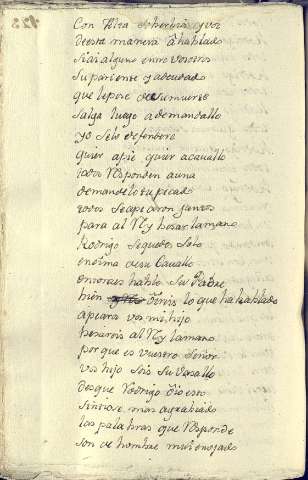 123
Con Voz soberbia y voz
de esta manera a hablado
si ai alguno entre vosotros
su pariente y adeudado
que le pese de su muerte
salga luego a demandallo
yo selo defendere
quier apie, quier acauallo
todos Responden a una
demandelo su pecado
todos se apearon juntos
para al Rey besar la mano
Rodrigo se quedo solo
encima de su Cauallo
entonces hablo su Padre
bien oireis lo que ha hablado
apeaos vos mi hijo
besareis al Rey la mano
porque es vuestro señor
vos hijo sois su vasallo
desque Rodrigo oio esto
sintiose mas agrabiado
las palabras que Responde
son de hombre mui enojado